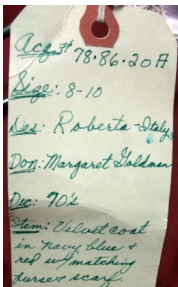 Acq# 78.86.20A
Size: 8-10
Des: Roberta-Italy
Don: Margaret Goldman
Dec: 70's
Item: Velvet coat
in navy blue &
red w/matching
purse & scarf.